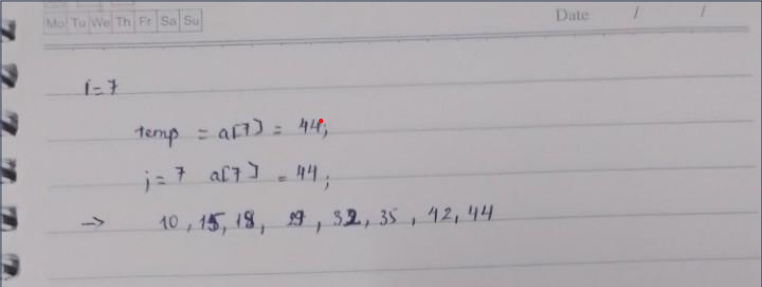 Mo Tu We Th Fr Sa Su
Date / /
i=7
temp = a[7] = 44;
j= 7 a[7] = 44;
→ 10, 15, 18, 29, 32, 35, 42, 44